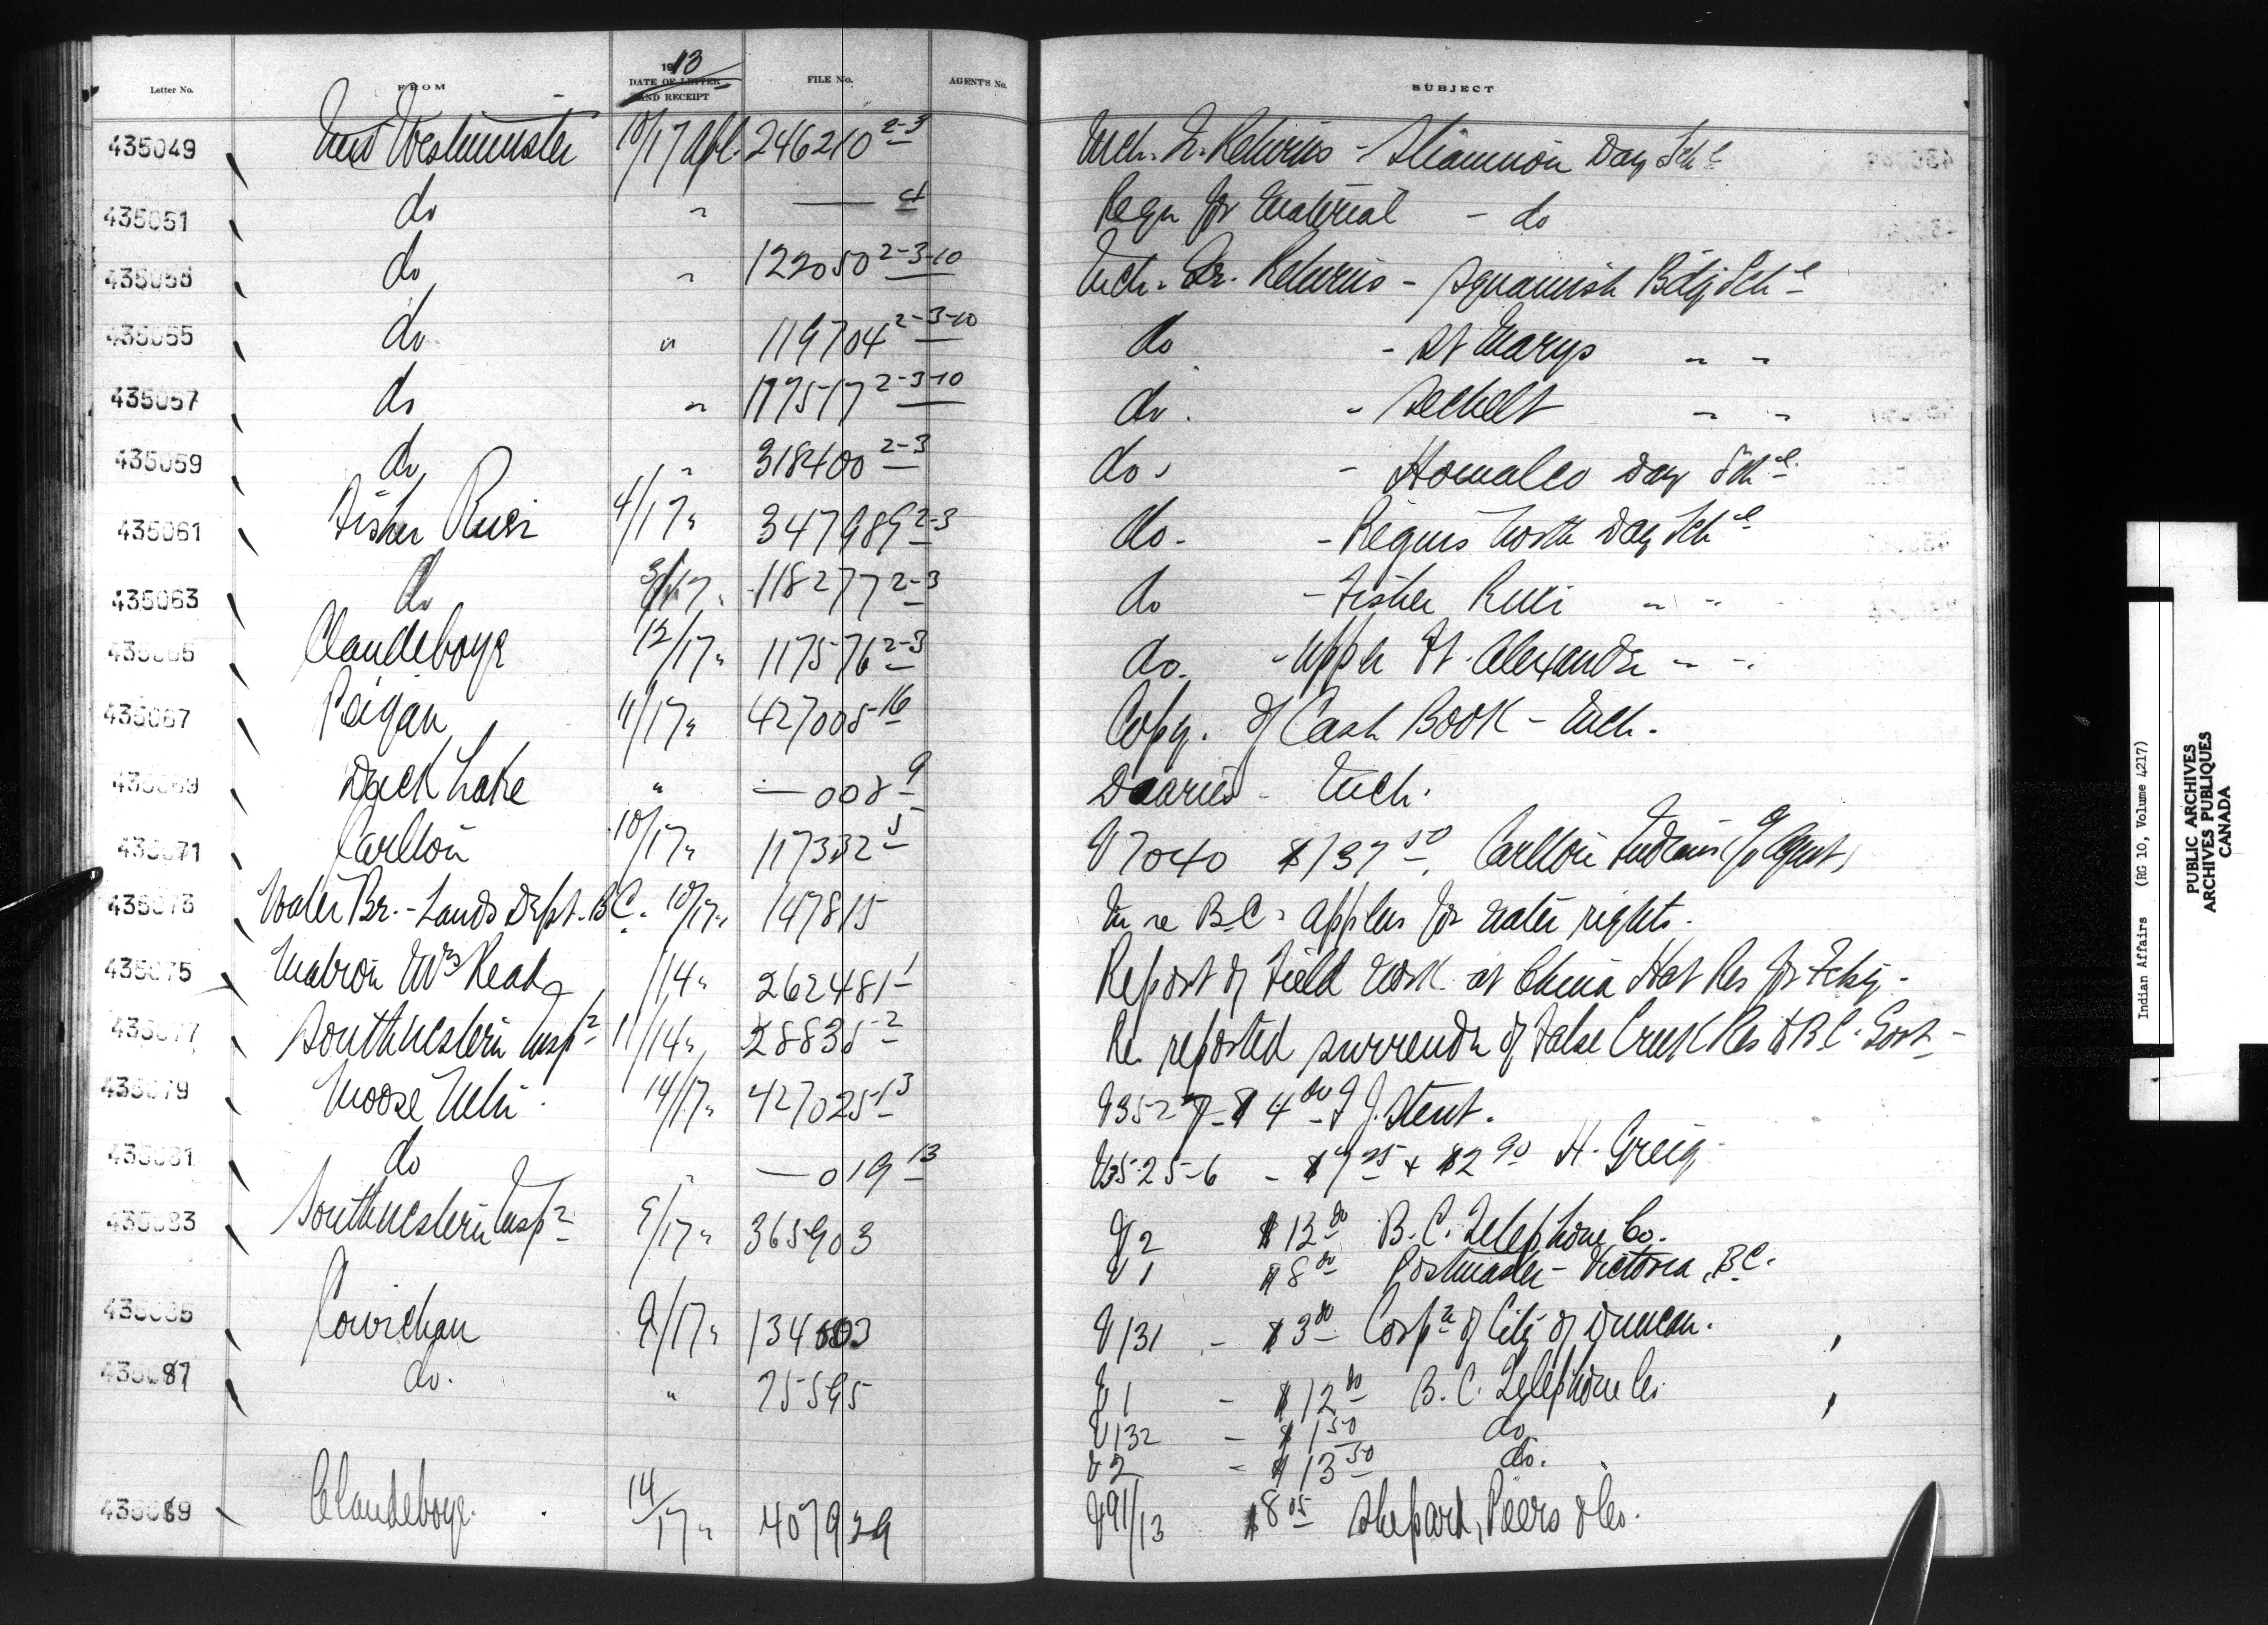 Letter No. FROM 1913 DATE OF LETTER AND RECEIPT FILE No. AGENT'S No. SUBJECT
435049 New Westminster 10/17 Apl. 246210 2-3 Mch. Qr. Returns - Sliammon Day Schl
435051 do " — 4 Reqn for Material - do
435053 do " 122050 2-3-10 Mch. Qr. Returns - Squamish Bdg Schl
435055 do " 119704 2-3-10 do - St Marys " "
435057 do " 117517 2-3-10 do. - Sechelt " "
435059 do " 318400 2-3 do - Homalco Day Schl.
435061 Fisher River 4/17 " 347989 2-3 do - Peguis North Day Schl
435063 do 3/17 " 118277 2-3 do - Fisher River " "
435065 Clandeboye 12/17 " 117576 2-3 do. - Upper Ft. Alexander " "
435067 Peigan 11/17 " 427008-16 Copy of Cash Book - Mch.
435069 Duck Lake " — 008 9 Diaries - Mch.
435071 Carlton 10/17 " 117332 5 V 7040 $137 50 Carlton Indians c/o Agent
435073 Water Br. - Lands Dept. B.C. 10/17 " 147815 In re B.C. applns for water rights.
435075 Matron Mrs Read /14 " 262481-1 Report of Field Work at China Hat Res for Feby -
435077 Southwestern Insp 11/14 " 28835-2 Re reported surrender of False Creek Res to B.C. Govt -
435079 Moose Mtn. 14/17 " 427025-13 V3527 - $4 00 J. Stent.
435081 do " — 019 13 V3525-6 - $ + $2 90 H. Greig
435083 Southwestern Insp 9/17 " 365903 V 2 $13 00 B. C. Telephone Co.
V 1 $8 00 Postmaster - Victoria, B.C.
435085 Cowichan 9/17 " 134 V 131 - $3 00 Corpn of City of Duncan.
435087 do. " 75595 V 1 - $12 00 B. C. Telephone Co.
V 132 - $1 50 do
V 2 - $13 50 do.
435089 Clandeboye. 14/17 " 407929 V 91/13 $8 05 Shepard, Peers & Co.
Indian Affairs (RG 10, Volume 4217)
PUBLIC ARCHIVES
ARCHIVES PUBLIQUES
CANADA